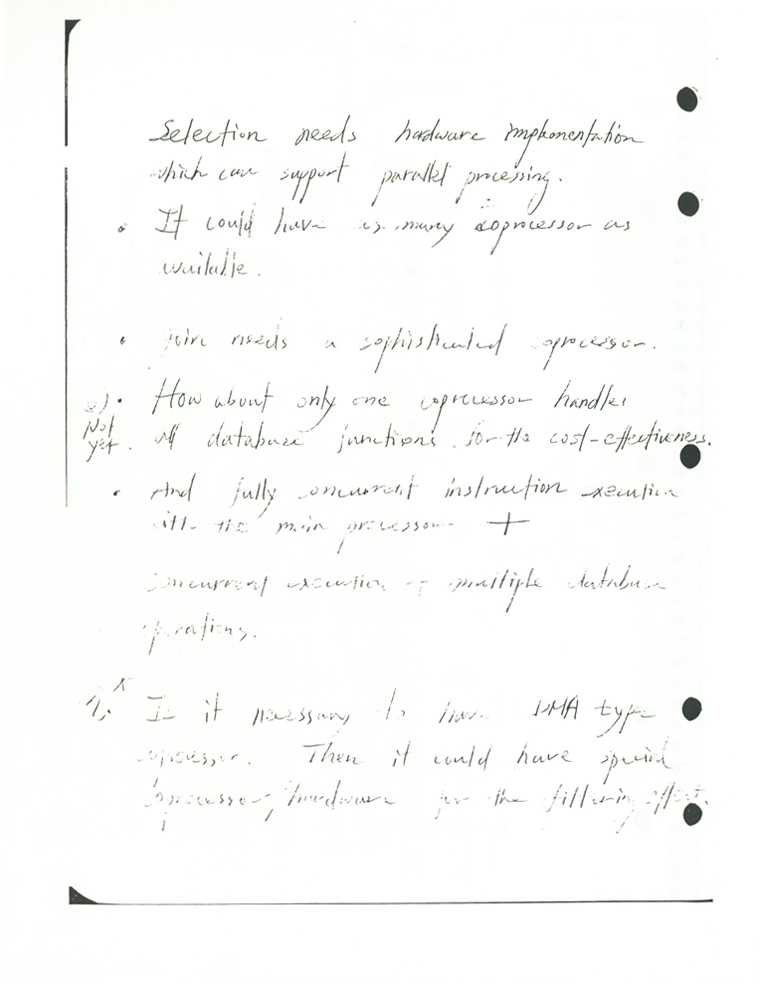 Selection needs hardware implementation
which can support parallel processing.
• It could have as many coprocessor as
available.
• Join needs a sophisticated coprocessor.
• How about only one coprocessor handles
Not yet. all database functions for the cost-effectiveness.
• And fully concurrent instruction execution
with the main processor +
concurrent execution of multiple database
operations.
Is it necessary to have DMA type
coprocessor. Then it could have special
coprocessor/hardware for the filtering effect.